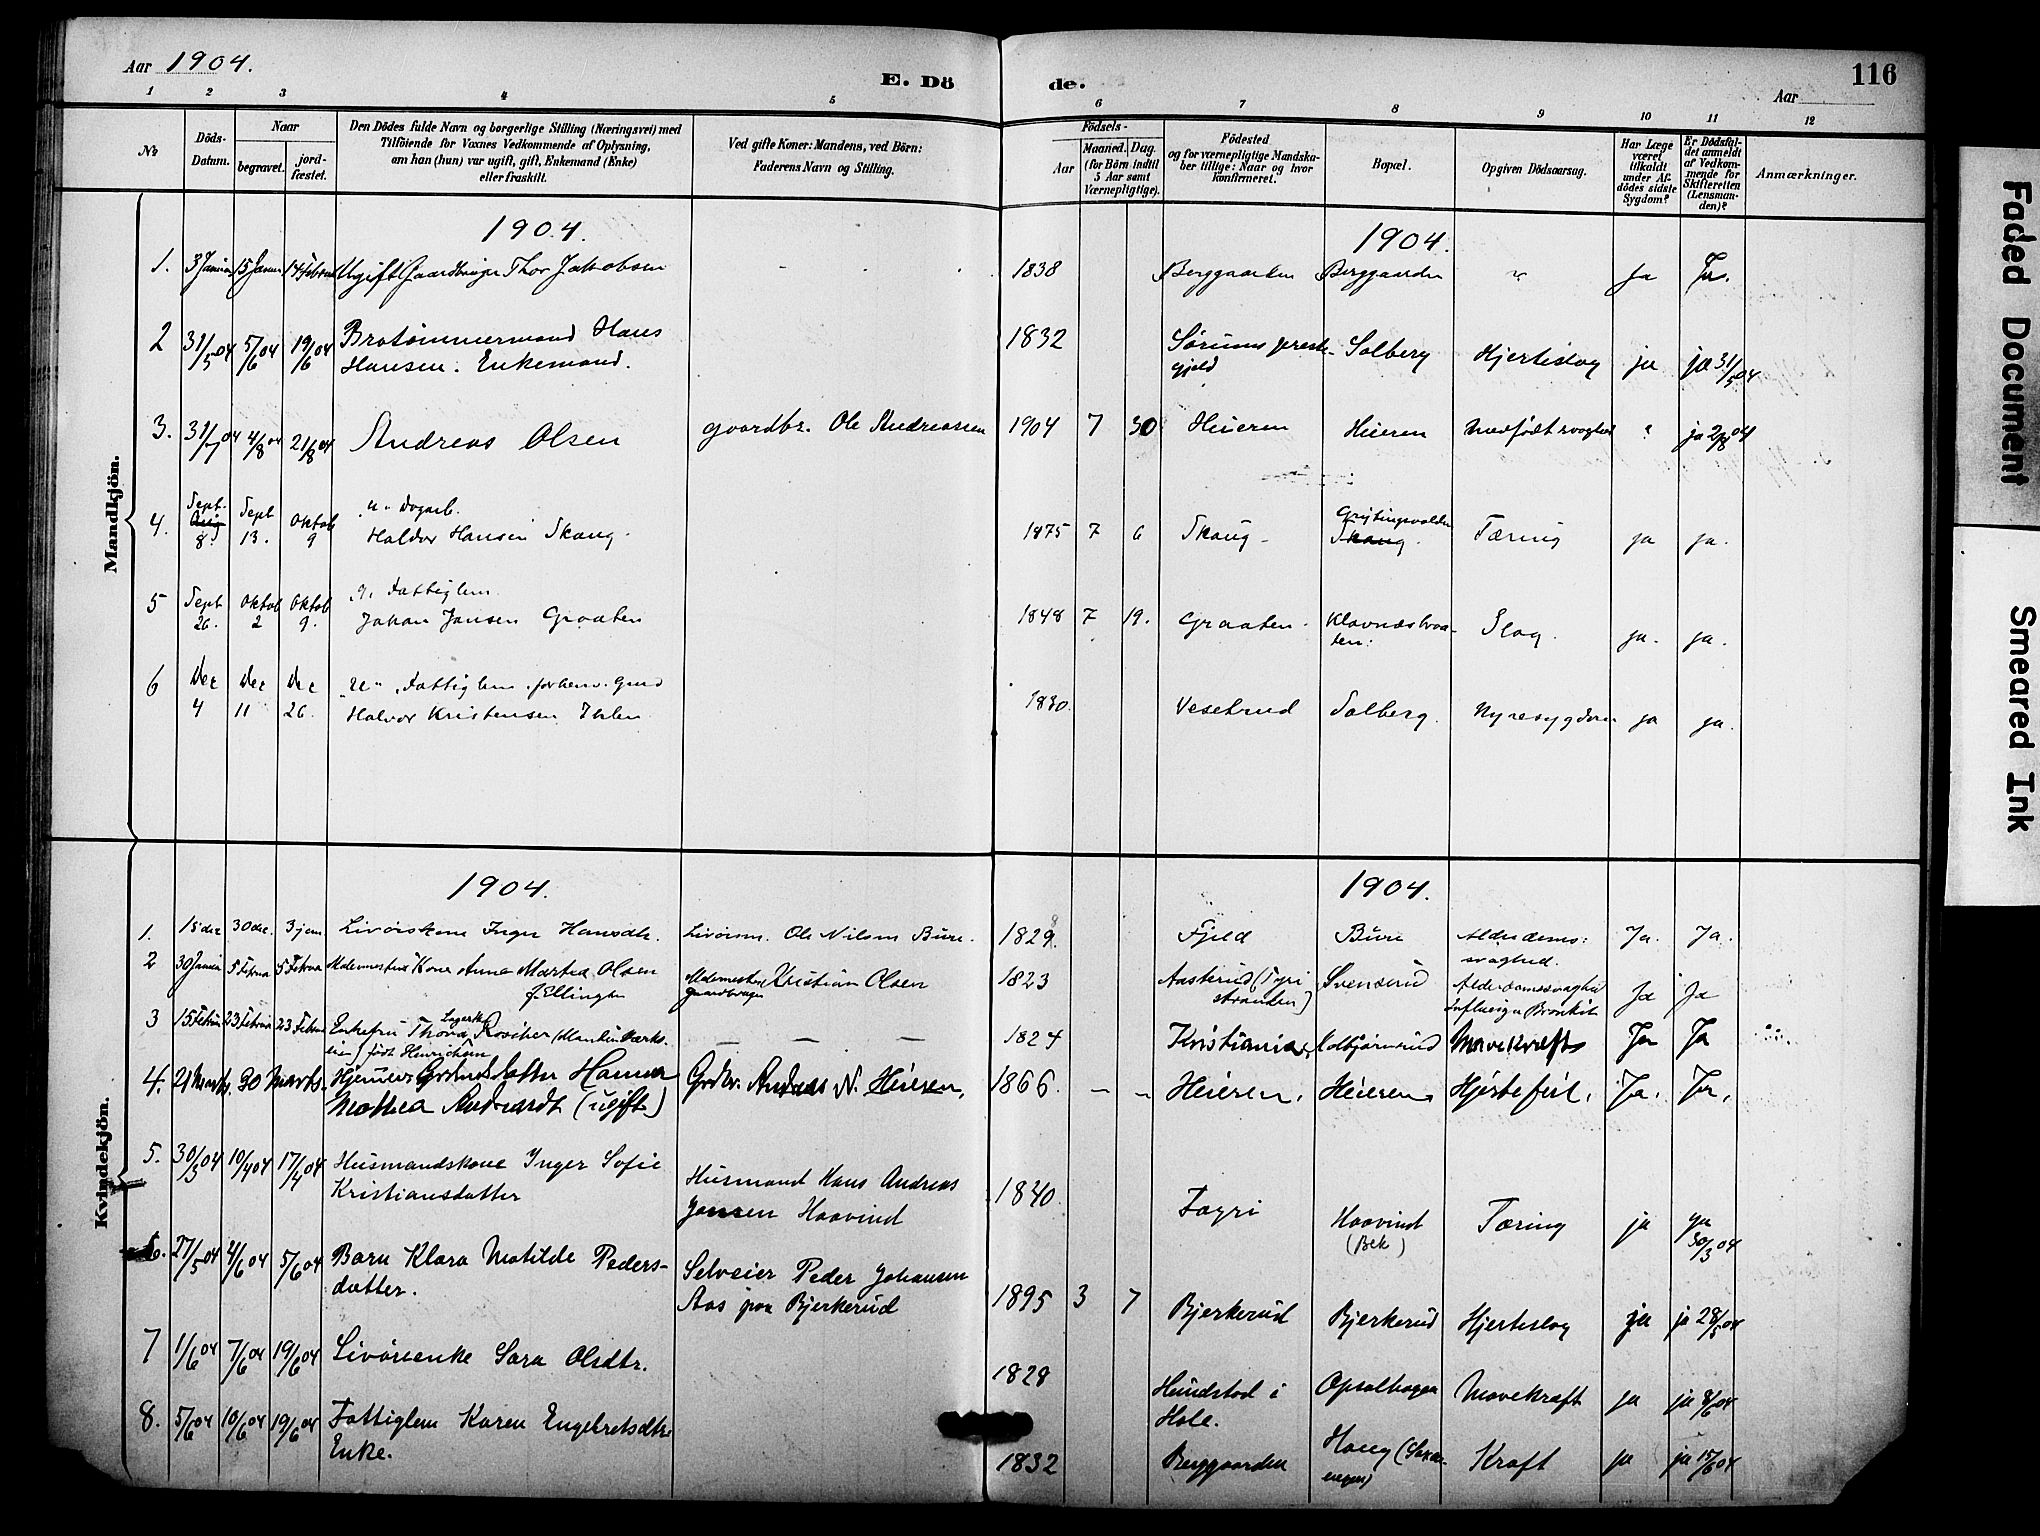 Aar 1904.
E. Dö
de.
116
Aar
1 2 3 4 5 6 7 8 9 10 11 12
No
Döds-Datum.
Naar
begravet.
jord-fæstet.
Den Dödes fulde Navn og borgerlige Stilling (Næringsvei) med
Tilföiende for Voxnes Vedkommende af Oplysning,
om han (hun) var ugift, gift, Enkemand (Enke)
eller fraskilt.
Ved gifte Koner: Mandens, ved Börn:
Faderens Navn og Stilling.
Födsels-
Aar
Maaned. Dag.
(for Börn indtil
5 Aar samt
Værnepligtige).
Födested
og for værnepligtige Mandska-
ber tillige: Naar og hvor
konfirmeret.
Bopæl.
Opgiven Dödsaarsag.
Har Læge
været
tilkaldt
under Af-
dödes sidste
Sygdom?
Er Dödsfal-
det anmeldt
af Vedkom-
mende for
Skifteretten
(Lensman-
den)?
Anmærkninger.
Mandkjön.
1904. 1904.
1. 3 Januar 15 Januar 14 Februar Ugift Gaardbruger Thor Jakobsen 1838 Berggaarden Berggaarden Ja Ja.
2 31/5 04 5/6 04 19/6 04 Brotömmermand Hans 1832 Sørums preste- Solberg Hjerteslag ja ja 31/5 04
Hansen. Enkemand. gjeld
3. 31/7 04 4/8 04 21/8 04 Andreas Olsen gaardbr. Ole Andreassen 1904 7 30 Heieren Heieren Medfødt svaghed ? ja 2/8 04
4. Sept. 8. Sept 13. Oktob 9 "u" Dagarb. Grytingsvolden
Haldor Hansen Skaug. 1875 7 6 Skaug Skaug. Tæring ja ja.
5 Sept 26. Oktob 2 Oktob 9. "g" Fattiglem
Johan Jansen Graaten 1848 7 19. Graaten Klovnesbraa- Slag. ja. ja.
ten.
6 Dec 4 Dec 11 Dec 26. "u" Fattiglem. forhenv. Grd
Halvor Kristensen Ihlen 1830. Vesetrud Solberg. Nyresygdom ja ja.
Kvindekjön.
1904. 1904.
1. 15 dec 30 dec. 3 jan Livörskone Inger Hansdtr. Livörsm. Ole Nilsen Bure. 1829 Fjeld Bure Alderdoms- Ja. Ja.
svaghed.
2 30 Januar 5 Februar 5 Februar Malermesters Kone Anne Martea Olsen Malermester Kristian Olsen 1823 Aasterud (Tyri Svenserud Alderdomssvaghed Ja Ja
f. Ellingsen gaardbruger stranden) Influensa Bronkit
3 15 Februar 23 Februar 23 Februar Enkefru Thora 1824 Kristiania Colbjørnsrud Mavekræft Ja Ja
født Hinrichsen
4. 21 Marts. 30 Marts. Hjemmev. Grdmdsdatter Hanna Grdbr. Andreas N. Heieren. 1866 Heieren. Heieren Hjertefeil. Ja. Ja.
Mathea Andreasdt (ugift)
5. 30/3 04 10/4 04 17/4 04 Husmandskone Inger Sofie Husmand Hans Andreas 1840 Fagri Haavind Tæring ja ja 30/3 04
Kristiansdatter Jansen Haavind (Bek)
6. 27/5 04 4/6 04 5/6 04 Barn Klara Matilde Peders- Selveier Peder Johansen 1895 3 7 Bjerkerud Bjerkerud Hjerteslag ja ja 28/5 04
datter. Aas paa Bjerkerud
7 1/6 04 7/6 04 19/6 04 Livörsenke Sara Olsdtr. 1828 Hundstad i Opsalhagen Mavekræft ja ja 8/6 04
Hole.
8. 5/6 04 10/6 04 19/6 04 Fattiglem Karen Engebretsdtr. 1832 Berggaarden Haug Kræft ja ja 15/6 04
Enke.
Faded Document
Smeared Ink